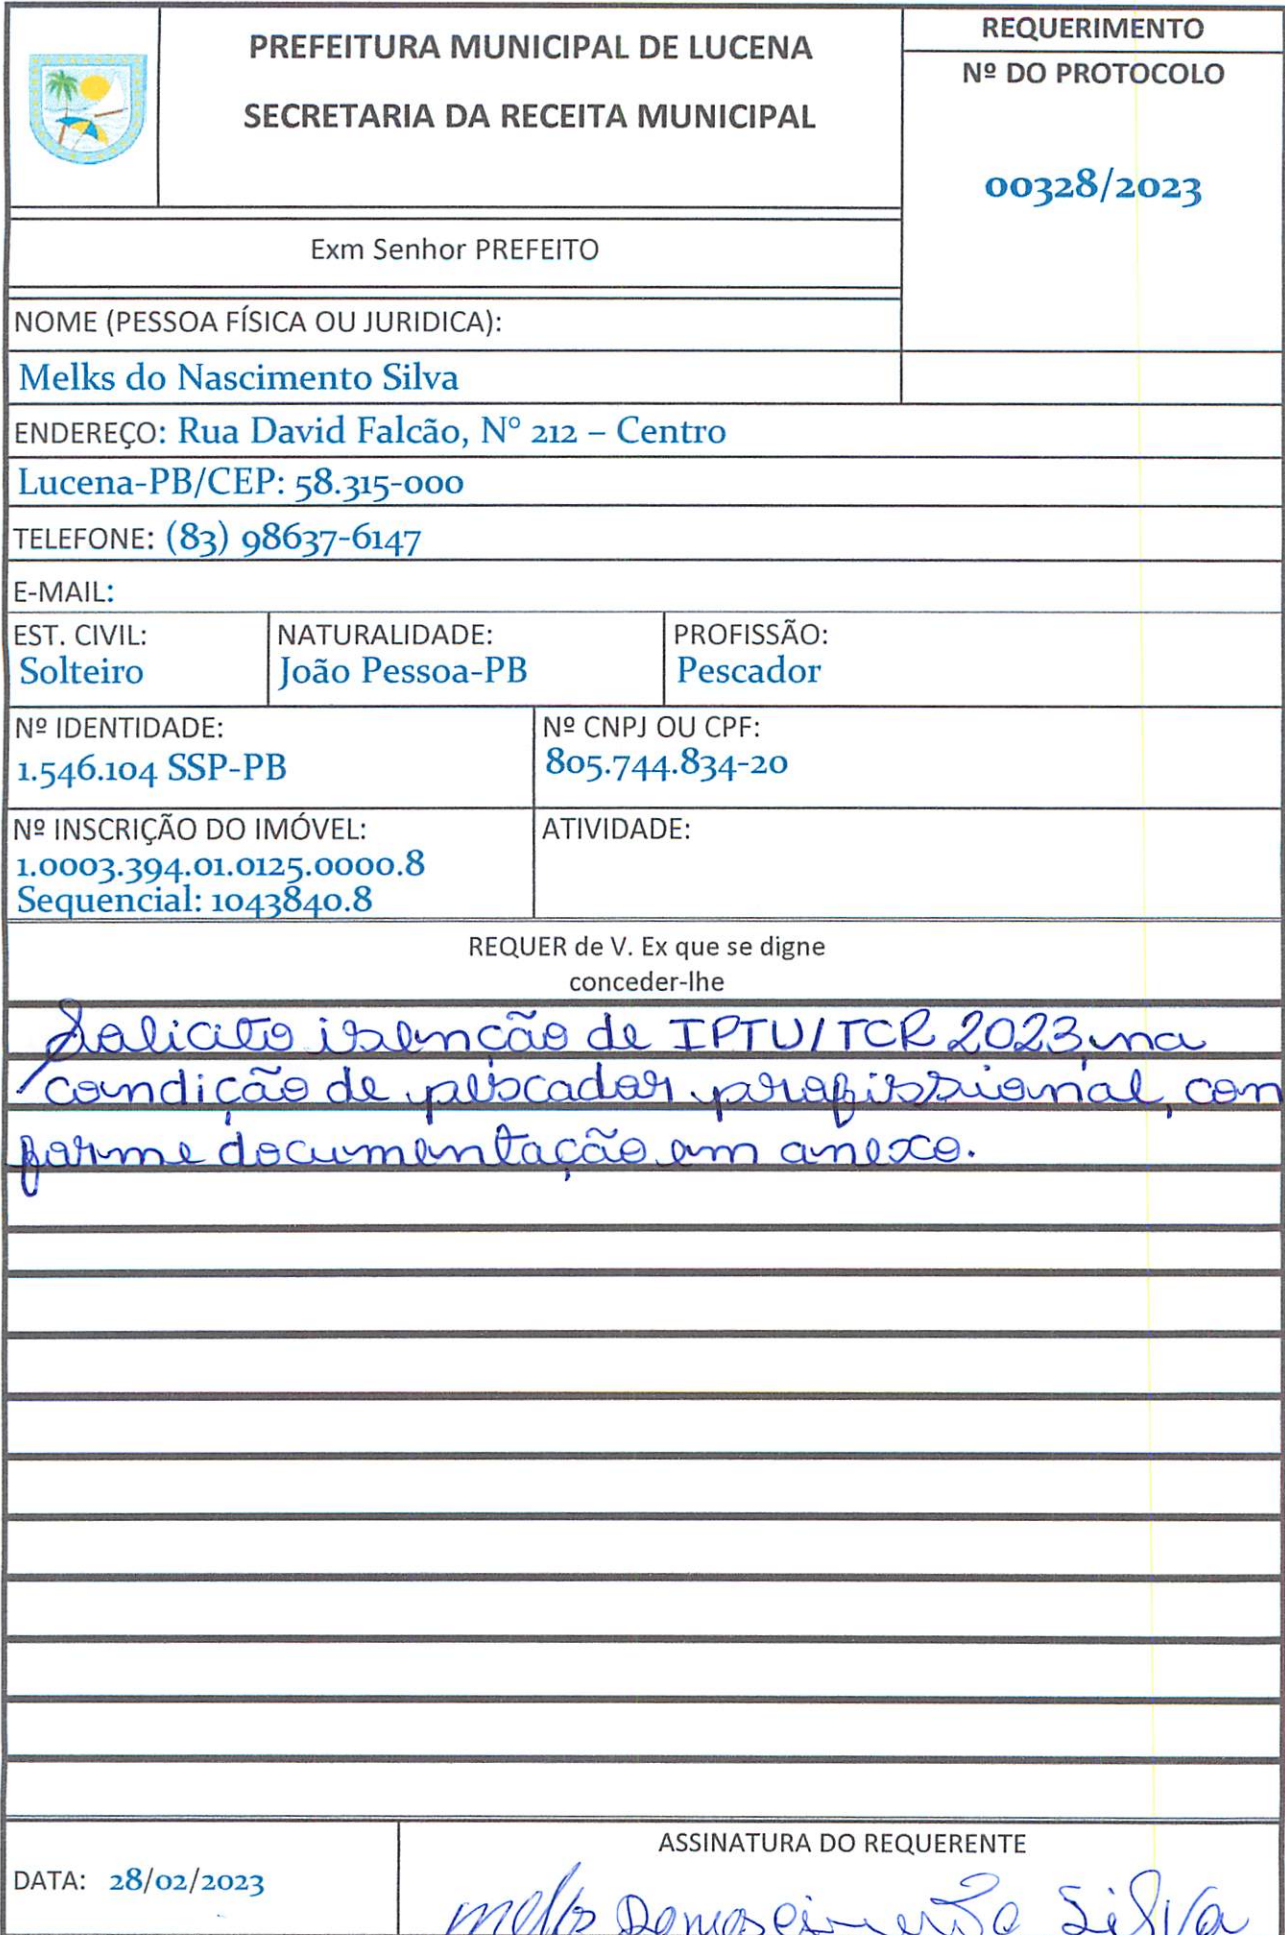 PREFEITURA MUNICIPAL DE LUCENA
SECRETARIA DA RECEITA MUNICIPAL
REQUERIMENTO
Nº DO PROTOCOLO
00328/2023
Exm Senhor PREFEITO
NOME (PESSOA FÍSICA OU JURIDICA):
Melks do Nascimento Silva
ENDEREÇO: Rua David Falcão, N° 212 – Centro
Lucena-PB/CEP: 58.315-000
TELEFONE: (83) 98637-6147
E-MAIL:
EST. CIVIL:
Solteiro
NATURALIDADE:
João Pessoa-PB
PROFISSÃO:
Pescador
Nº IDENTIDADE:
1.546.104 SSP-PB
Nº CNPJ OU CPF:
805.744.834-20
Nº INSCRIÇÃO DO IMÓVEL:
1.0003.394.01.0125.0000.8
Sequencial: 1043840.8
ATIVIDADE:
REQUER de V. Ex que se digne
conceder-lhe
Solicito isenção de IPTU/TCR 2023, na
condição de pescador profissional, con
forme documentação em anexo.
DATA: 28/02/2023
ASSINATURA DO REQUERENTE
Melks Donascimento Silva